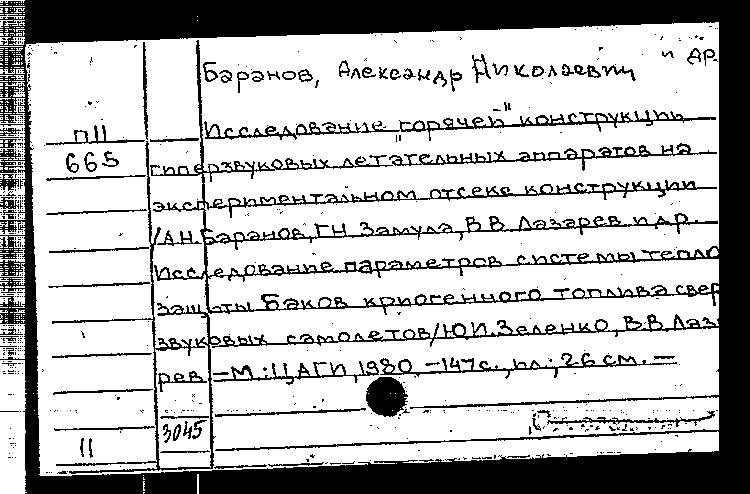 Баранов, Александр Николаевич и др.
П11 Исследование "горячей" конструкции
665 гиперзвуковых летательных аппаратов на
экспериментальном отсеке конструкции
/А.Н. Баранов, Г.Н. Замула, В.В. Лазарев и др.
Исследование параметров системы тепло
защиты баков криогенного топлива свер
звуковых самолетов/Ю.И. Зеленко, В.В. Лаза
рев. – М.: ЦАГИ, 1980. – 147 с., ил.; 26 см. –
3045
11